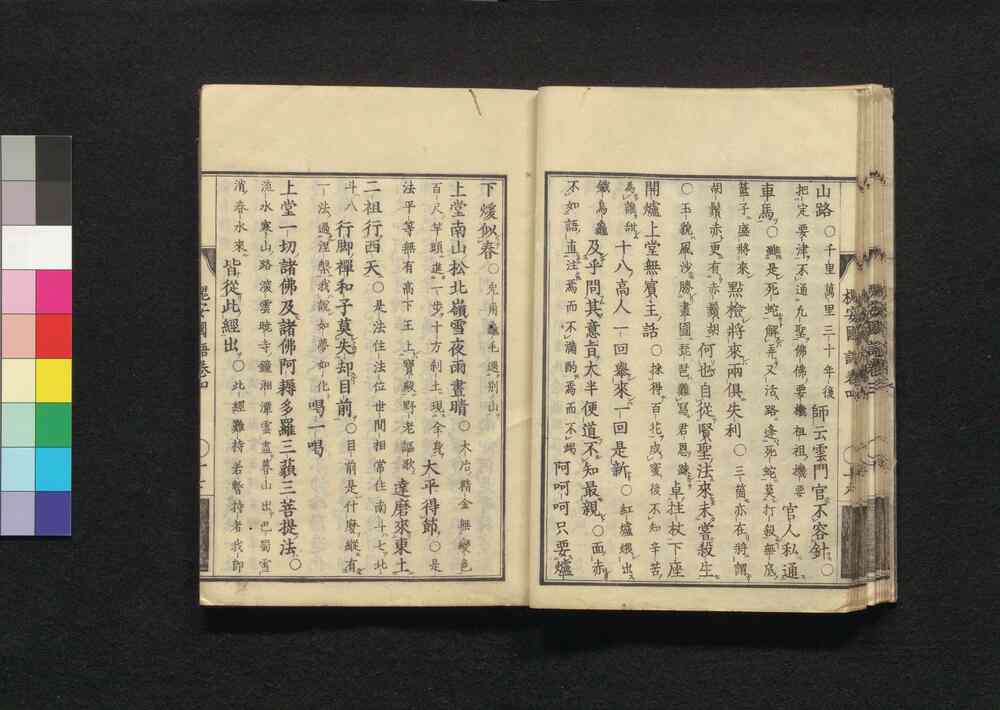 山路○千里萬里三十年後師云雲門官不容針○
把定要津不通凡聖佛佛要機祖祖機要官人私通
車馬○灩是死蛇解弄又活路逢死蛇莫打殺無底
籃子盛將來點檢將來兩俱失利○三箇亦在將謂
胡鬚赤更有赤鬚胡何也自從賢聖法來未嘗殺生
○玉貌風沙勝畫圖琵琶難寫君恩跡卓拄杖下座
開爐上堂無賓主話○採得百花成蜜後不知辛苦
爲誰甜十八高人一回擧來一回是新○紅爐蛾出
鐵烏龜及乎問其意旨大半便道不知最親○面赤
不如語直注焉而不滿酌焉而不竭阿呵呵呵只要爐
下煖似春○兔角龜毛過別山
上堂南山松北嶺雪夜雨晝晴○大冶精金無變色
百尺竿頭進一步十方刹土現全身大平得節○是
法平等無有高下王上寶殿野老謳歌達磨來東土
二祖行西天○是法住法位世間相常住南斗七北
斗八行脚禪和子莫失却目前○目前是什麼縱有
一法過涅槃我說如夢如化喝一喝
上堂一切諸佛及諸佛阿耨多羅三藐三菩提法○
流水寒山路深雲曉寺鐘湘潭雲盡暮山出巴蜀雪
消春水來皆從此經出○此經難持若暫持者我卽